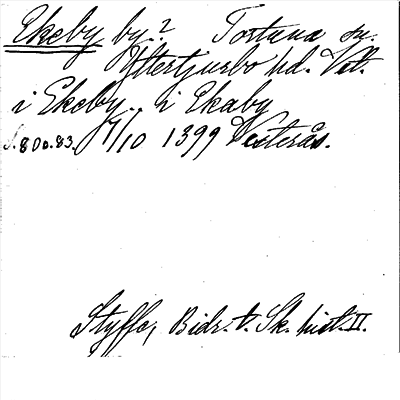 Ekeby by? Tortuna sn.
Yttertjurbo hd. Vstl.
i Ekeby.. i Ekaby
S. 80 o. 83. 17/10 1399 Vesterås.
Styffe, Bidr. t. Sk. hist. II.